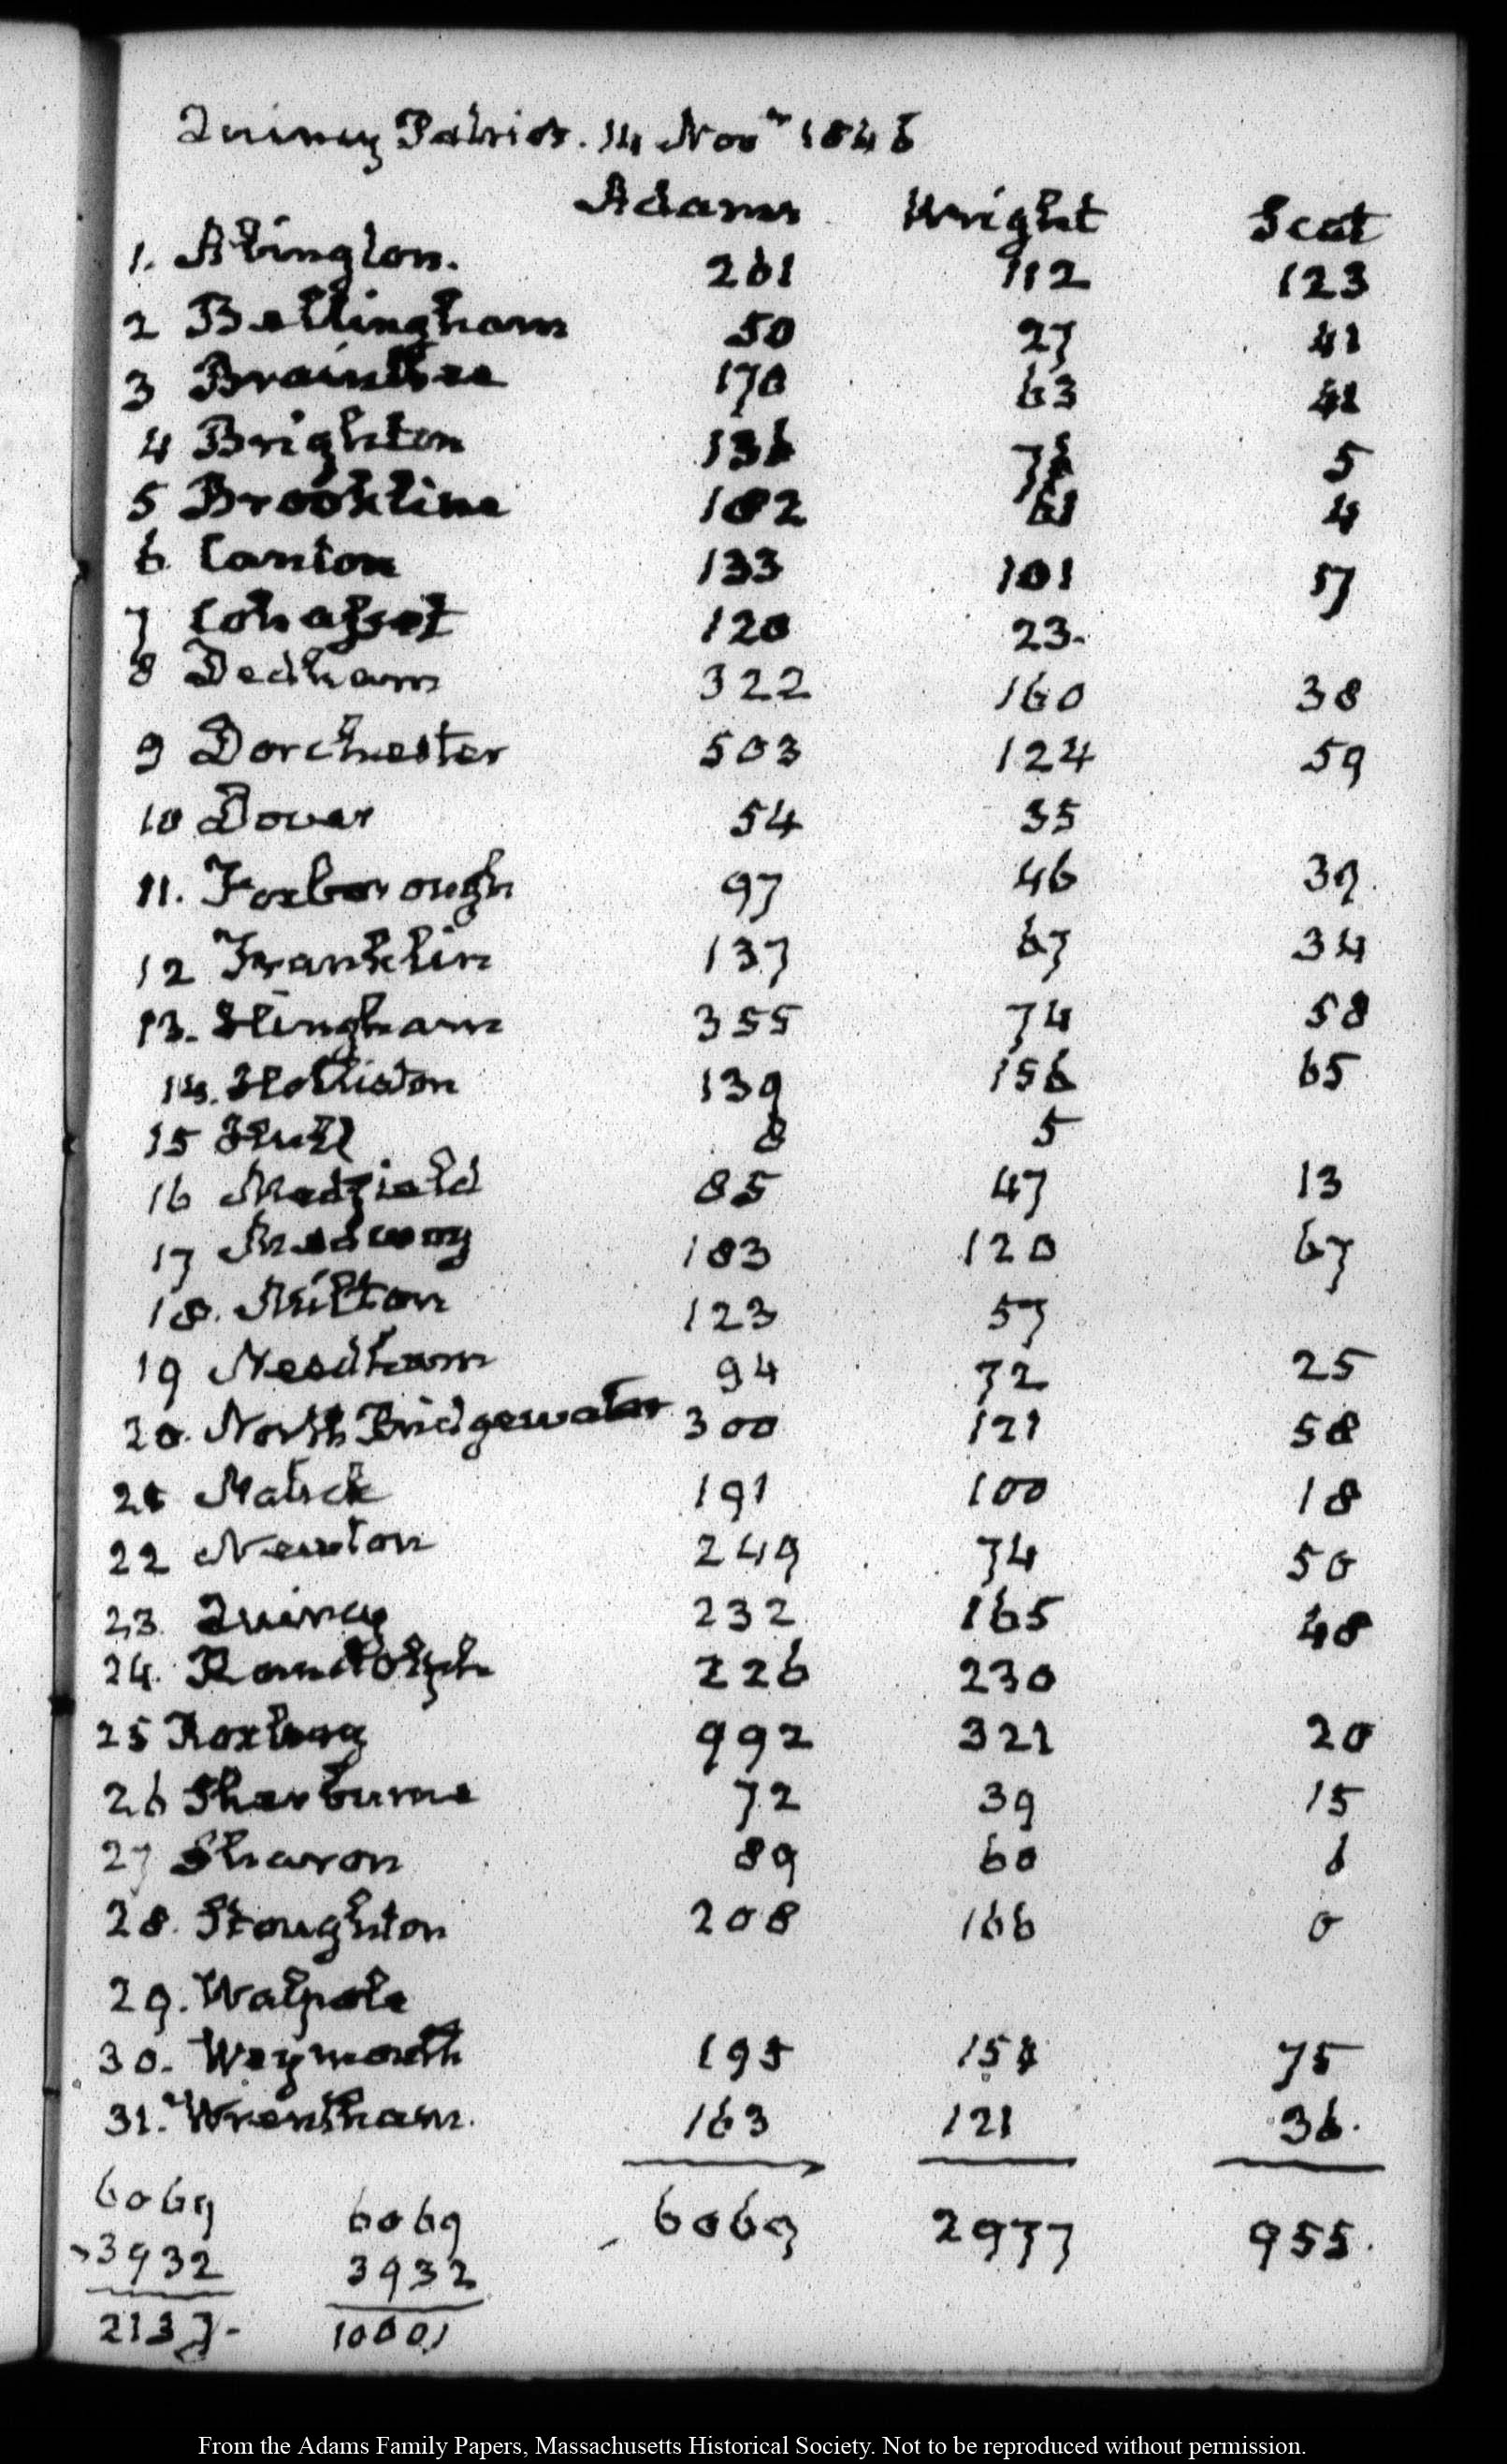 Quincy Patriot. 14 Nov.r 1846
Adams Wright Scat
1. Abington. 261 112 123
2 Bellingham 50 27 41
3 Braintree 170 63 41
4 Brighton 136 76 5
5 Brookline 182 61 4
6 Canton 133 101 17
7 Cohasset 120 23.
8 Dedham 322 160 38
9 Dorchester 503 124 59
10 Dover 54 35
11. Foxborough 97 46 39.
12 Franklin 137 67 34
13. Hingham 355 74 58
14. Holliston 139 156 65
15 Hull 8 5
16 Medfield 85 47 13
17 Medway 183 120 67
18. Milton 123 57
19 Needham 94 72 25
20. North Bridgewater 300 121 58
21 Natick 191 100 18
22 Newton 249 74 50
23. Quincy 232 165 48
24. Randolph 226 230
25 Roxbury 992 321 20
26 Sherburne 72 39 15
27 Sharon 89 60 6
28. Stoughton 208 166 0
29. Walpole
30. Weymouth 195 154 75
31. Wrentham. 163 121 36.
6069 6069 6069 2977 955.
3932 3932
2137- 10001
From the Adams Family Papers, Massachusetts Historical Society. Not to be reproduced without permission.